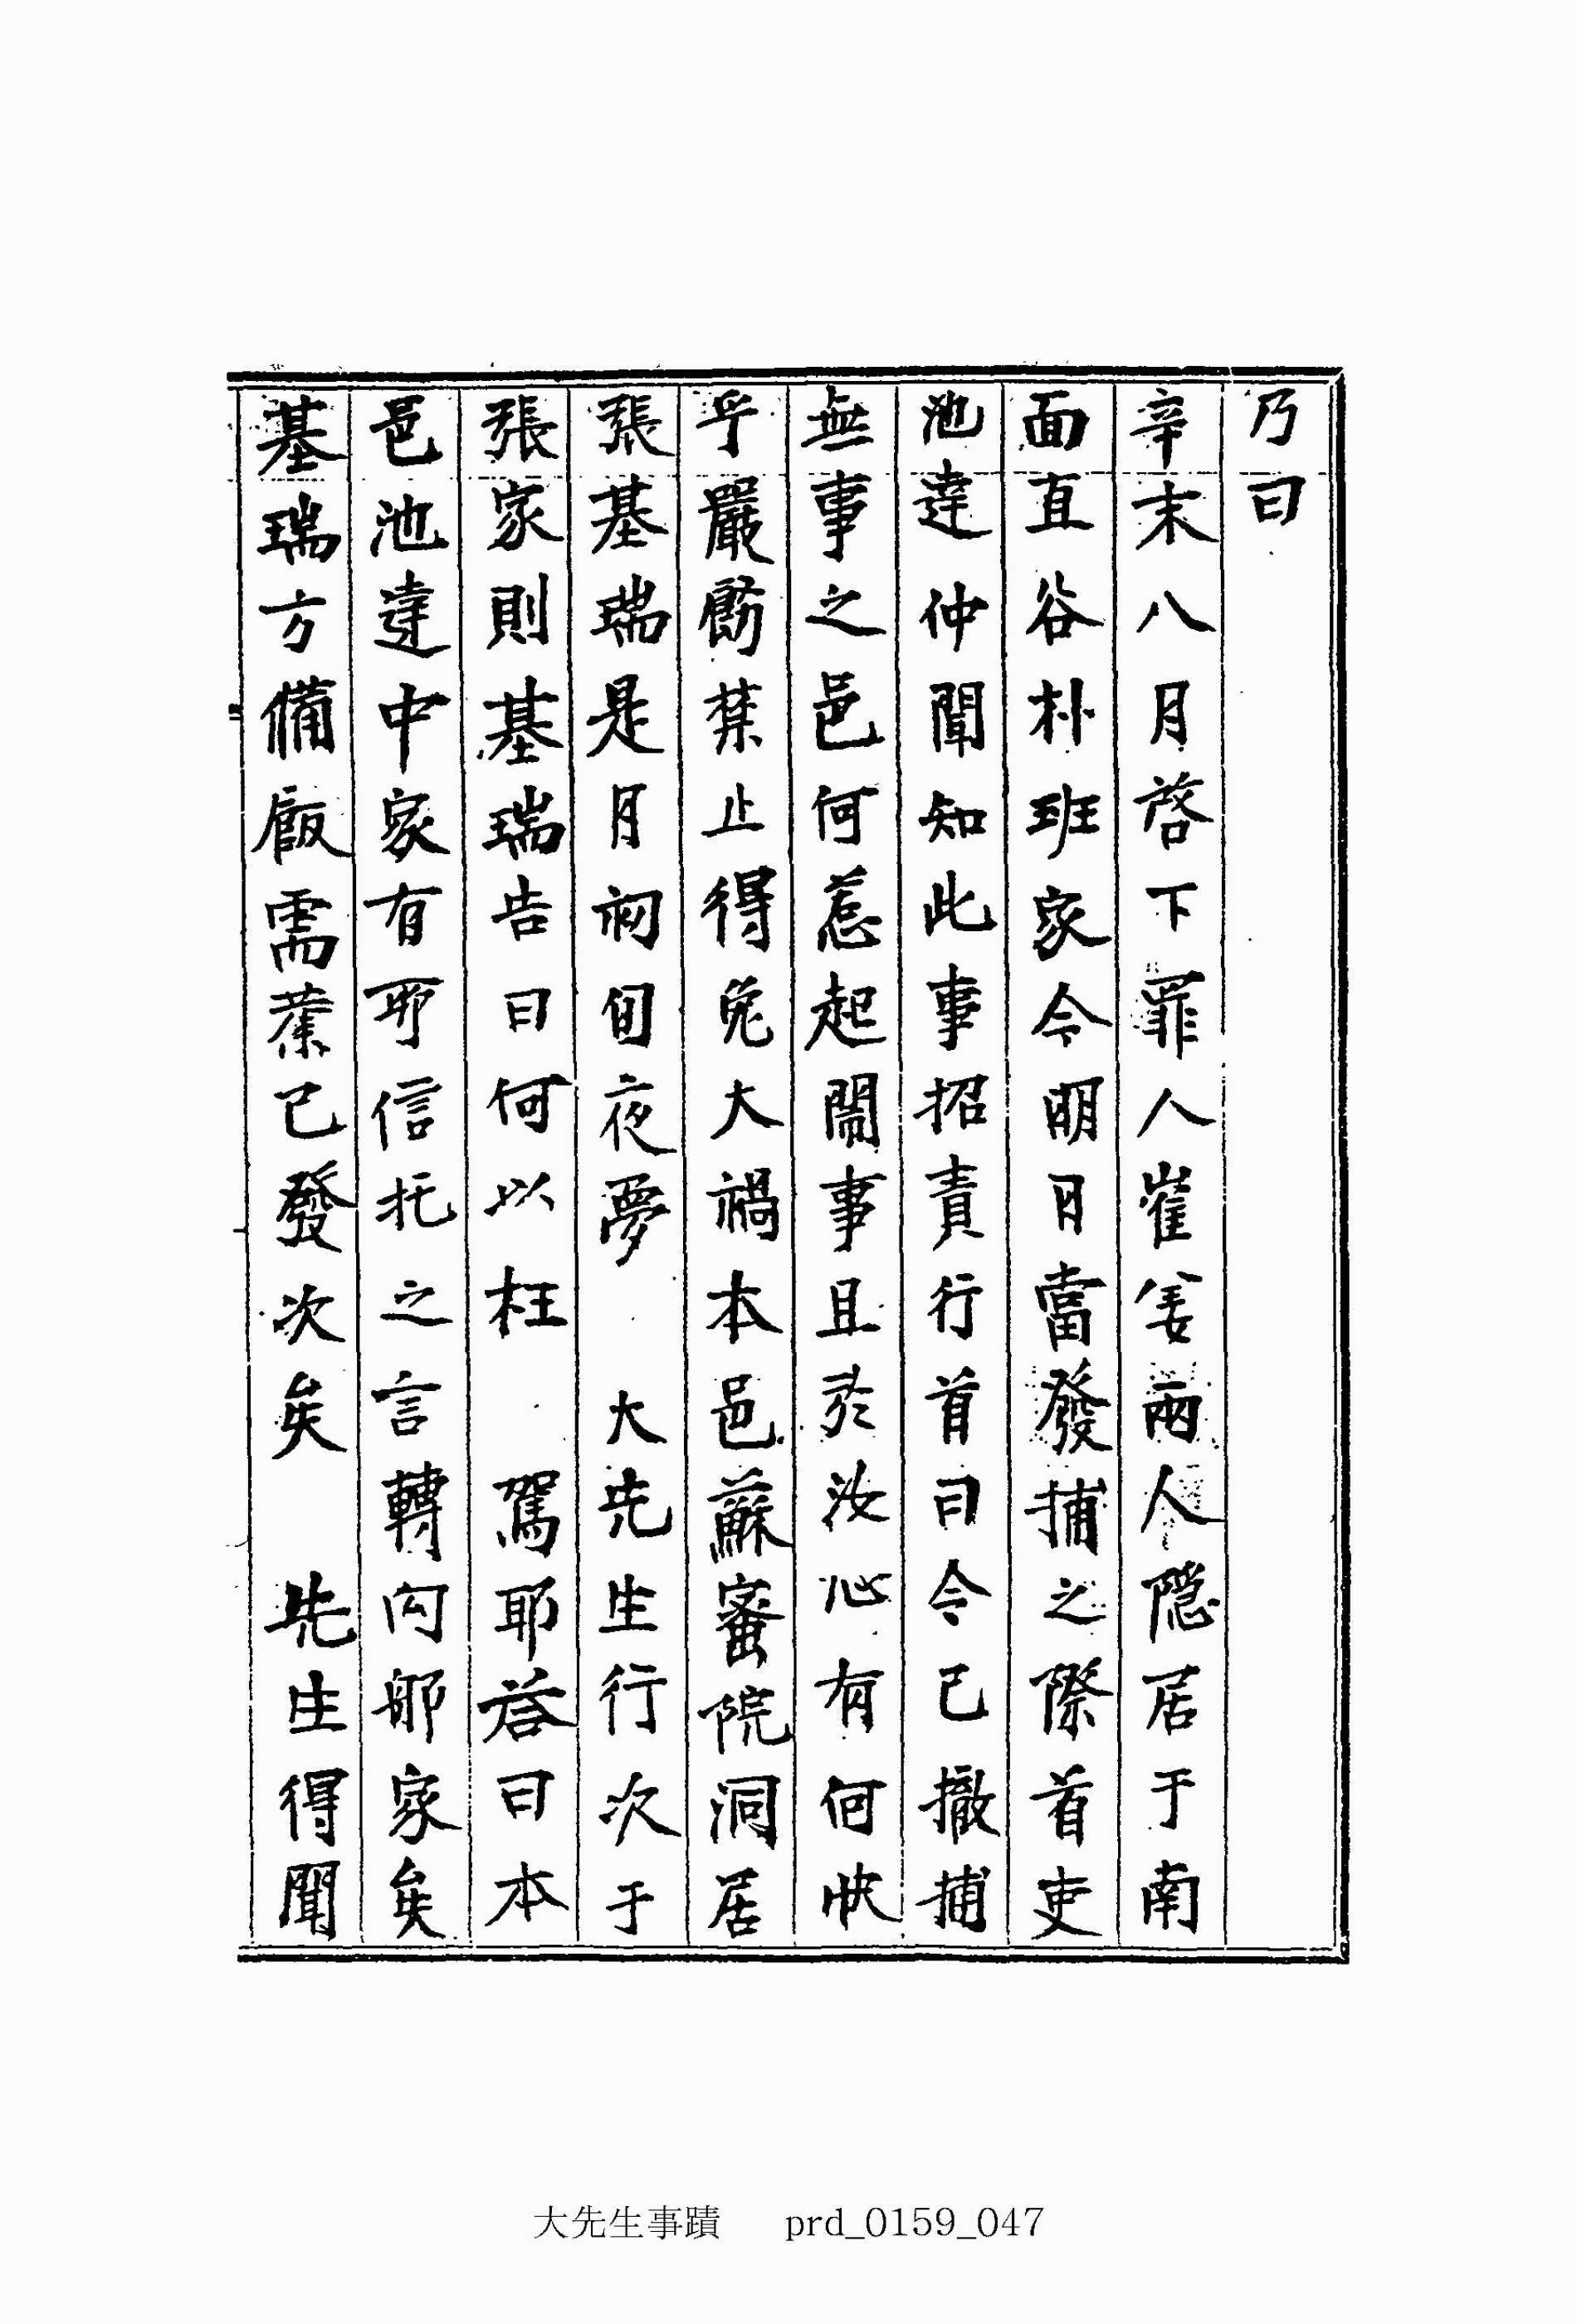 乃曰
辛未八月啓下罪人崔姜兩人隱居于南
面直谷朴班家今明日當發捕之際首吏
池達仲聞知此事招責行首曰今已撤捕
無事之邑何惹起鬧事且於汝心有何快
乎嚴飭禁止得免大禍本邑蘇蜜院洞居
張基瑞是月初旬夜夢　大先生行次于
張家則基瑞告曰何以枉　駕耶答曰本
邑池達中家有耶信托之言轉向那家矣
基瑞方備飯需藁已發次矣　先生得聞
大先生事蹟 prd_0159_047